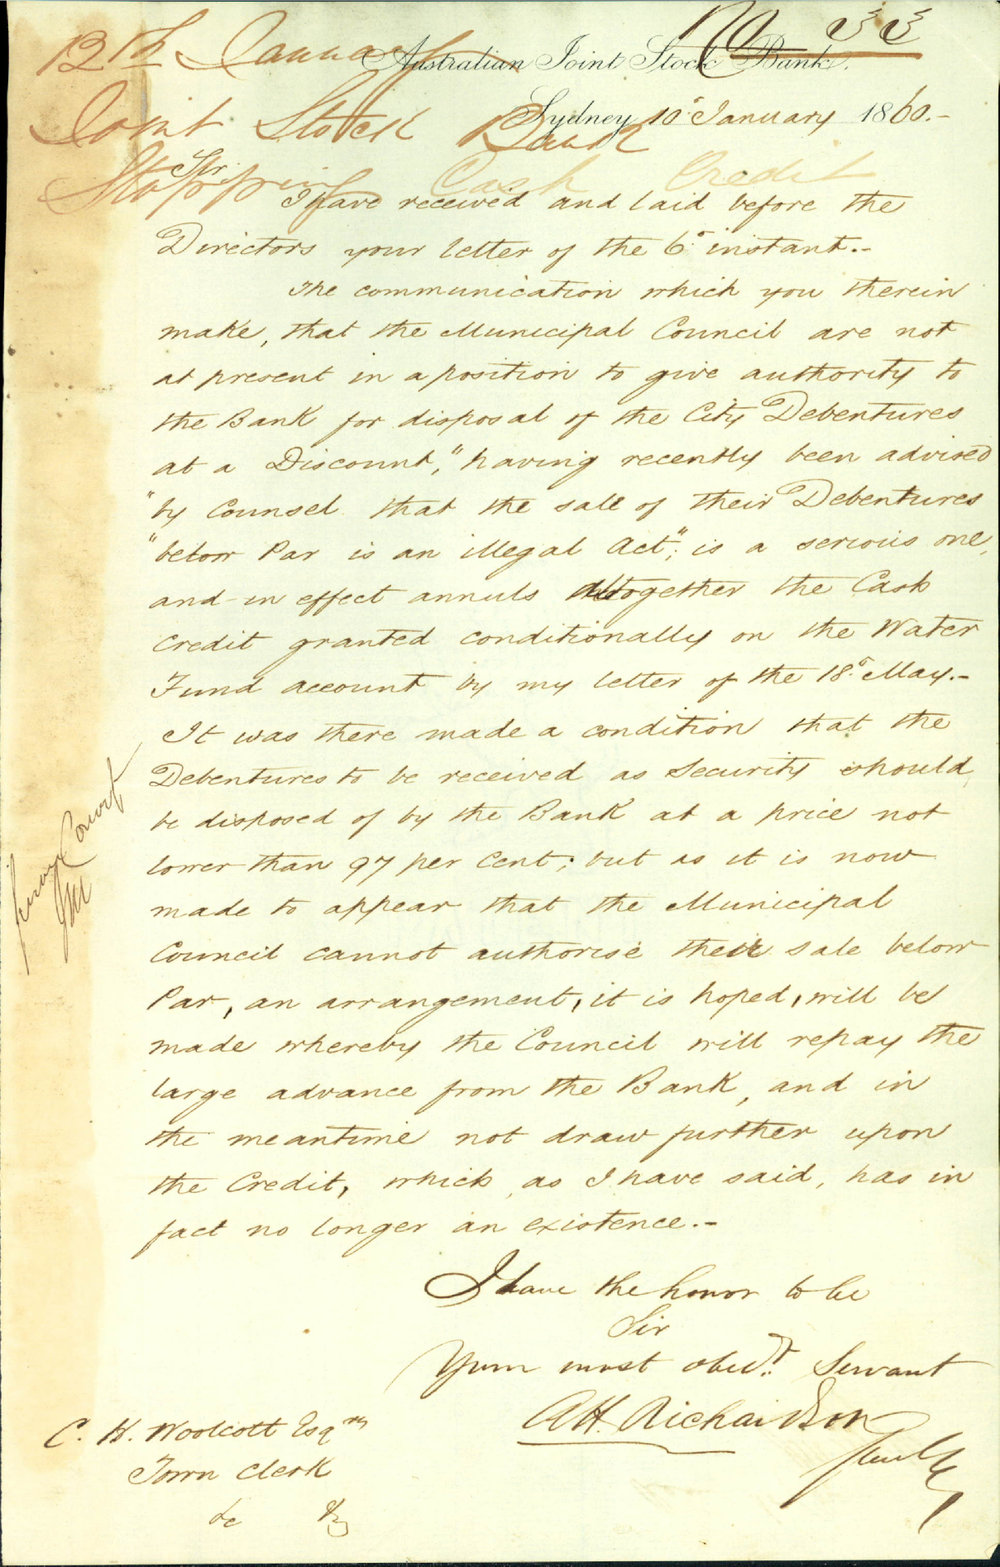 No 33
12th January
Australian Joint Stock Bank.
Sydney 10 January 1860.-
Joint Stock Bank
Stopping Cash Credit
Sir
I have received and laid before the
Directors your letter of the 6 instant.-
The communication which you therein
make, that the Municipal Council are not
at present in a position to give authority to
the Bank for disposal of the City Debentures
at a Discount, "having recently been advised
"by Counsel that the sale of their Debentures
"below Par is an illegal Act"; is a serious one,
and in effect annuls altogether the Cash
Credit granted conditionally on the Water
Fund account by my letter of the 18 May.-
It was there made a condition that the
Debentures to be received as Security should
be disposed of by the Bank at a price not
lower than 97 per Cent; but as it is now
made to appear that the Municipal
Council cannot authorise their sale below
Par, an arrangement, it is hoped, will be
made whereby the Council will repay the
large advance from the Bank, and in
the meantime not draw further upon
the Credit, which, as I have said, has in
fact no longer an existence.-
I have the honor to be
Sir
Your most obedt. Servant
A H. Richardson
C. H. Woolcott Esqre
Town Clerk
&c &c